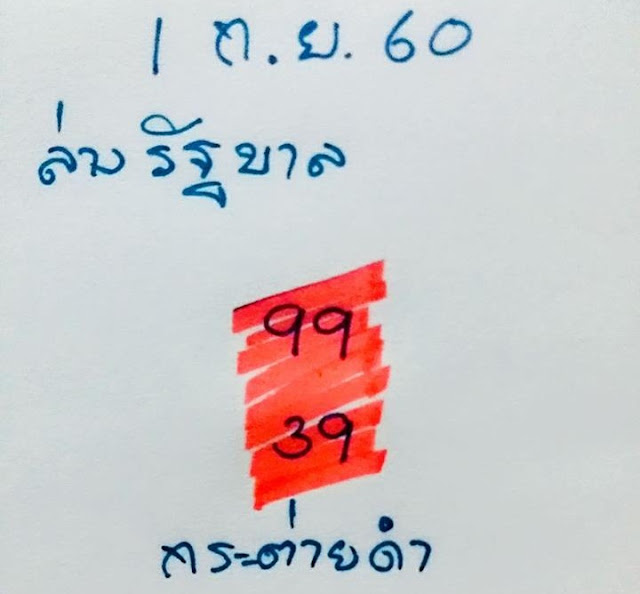 1 ก.ย. 60
ล่างรัฐบาล
99
39
กระต่ายดำ